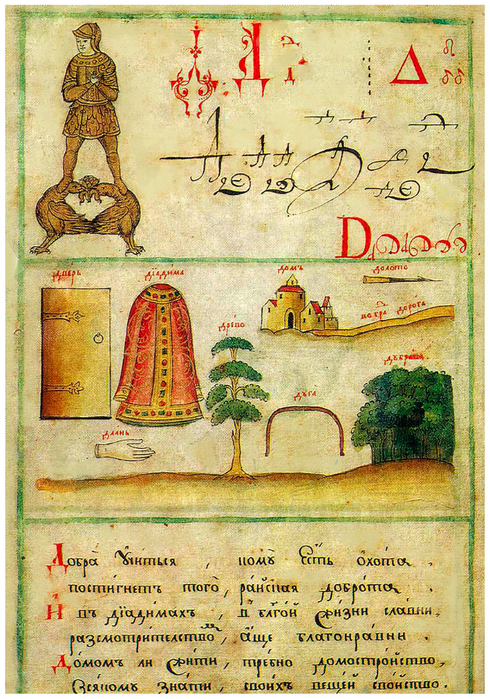 Д
дверь
діадима
домъ
долото
добра дорога
древо
дуга
дꙋбрава
длань
Добра̀ ᲂучи́ться , комꙋ̀ є҆́сть ѻ҆хо́та ,
пости́гнетъ того̀ , ра́йская добро́та .
И въ дїади́махъ , в благо́й жи́зни сла́вни ,
разсмотри́телство , а҆́ще благонра́вни .
До́момъ ли жи́ти , тре́бно домостро́йство ,
Вся́комꙋ зна́ти , свои́хъ веще́й сво́йство .